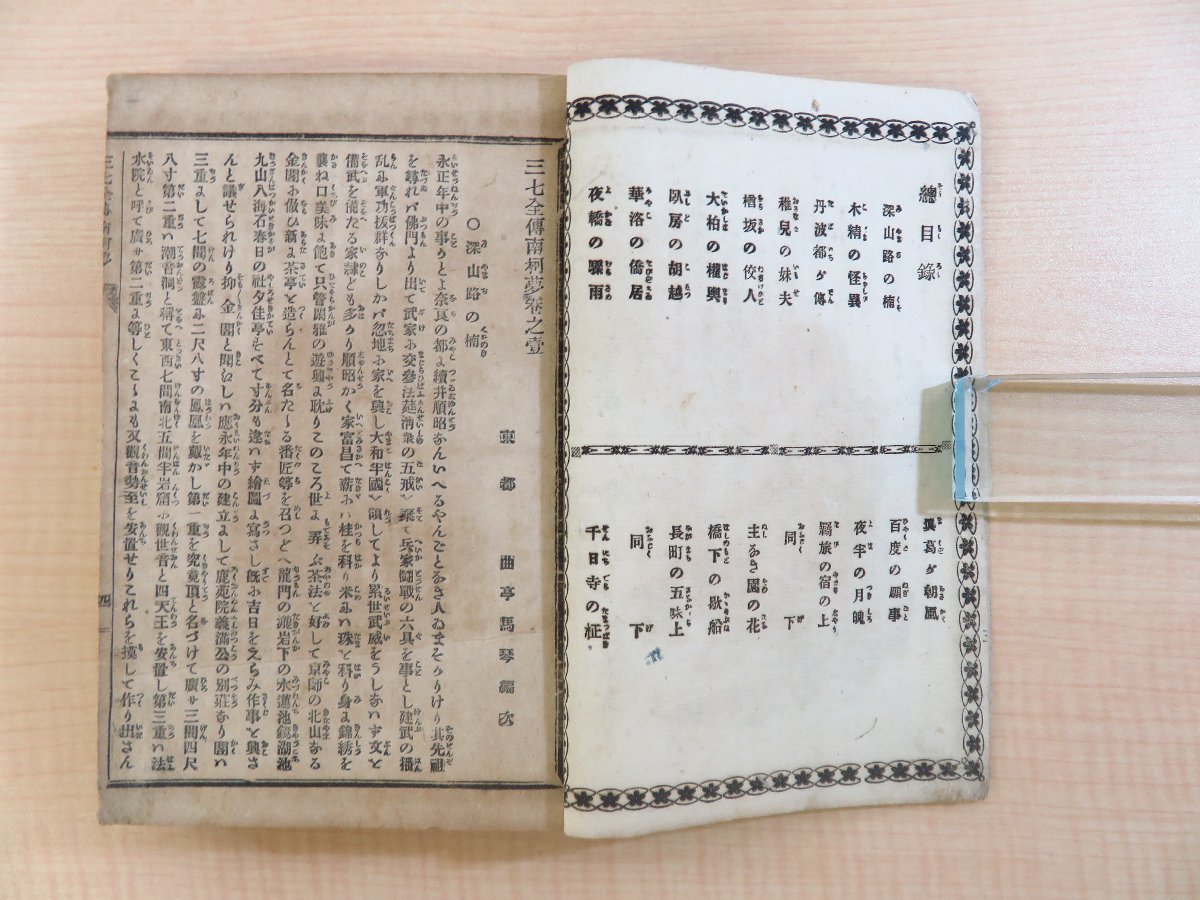 總目錄
深山路の楠
木精の怪異
丹波都が傳
稚兒の妹夫
楢坂の佼人
大柏の權輿
臥房の胡越
華洛の僑居
夜轎の驟雨
眞葛が朝風
百度の願事
夜半の月魄
羇旅の宿の上
同下
主なき園の花
橋下の歇船
長町の五味上
同下
千日寺の柾
三七全傳南柯夢卷之壹
東都 曲亭馬琴編次
○深山路の楠
永正年中の事りとよ奈良の都よ續井順昭なんいへるやんごとなき人ゐまそりけり其先祖
を尋れバ佛門より出て武家お交參法莚淸衆の五戒を棄て兵家鬪戰の六具を事とし建武の播
乱よ軍功拔群なりしかバ忽地お家を興し大和半國を領してより累世武威をうしなハず文と
備武を備たる家隷ども多かり順昭かく家富昌て薪ハ桂を科り米ハ珠と科り身よ錦綉を
襲ね口よ美味よ飽て只管閑雅の遊興よ耽りこのころ世よ弄ぶ茶法と好して京師の北山なる
金閣お倣ひ新よ茶亭と造らんとて名たゝる番匠等を召つどへ龍門の瀧岩下の水蓮池鏡湖池
九山八海石春日の社夕佳亭すべて寸分も違ハず繪圖よ寫さし既お吉日をえらみ作事と興さ
んと議せられけり抑金閣と聞ゆしハ應永年中の建立よして鹿苑院義滿公の別莊なり閣ハ
三重よして七間の露盤よ二尺八寸の鳳凰を鐵かし第一重を究竟頂と名づけて廣サ三間四尺
八寸第二重ハ潮音洞と稱て東西七間南北五間半岩窟お觀世音と四天王を安置し第三重ハ法
水院と呼て廣サ第二重よ等しくこゝよも又觀音勢至を安置せりこれらを摸して作り出さん
四